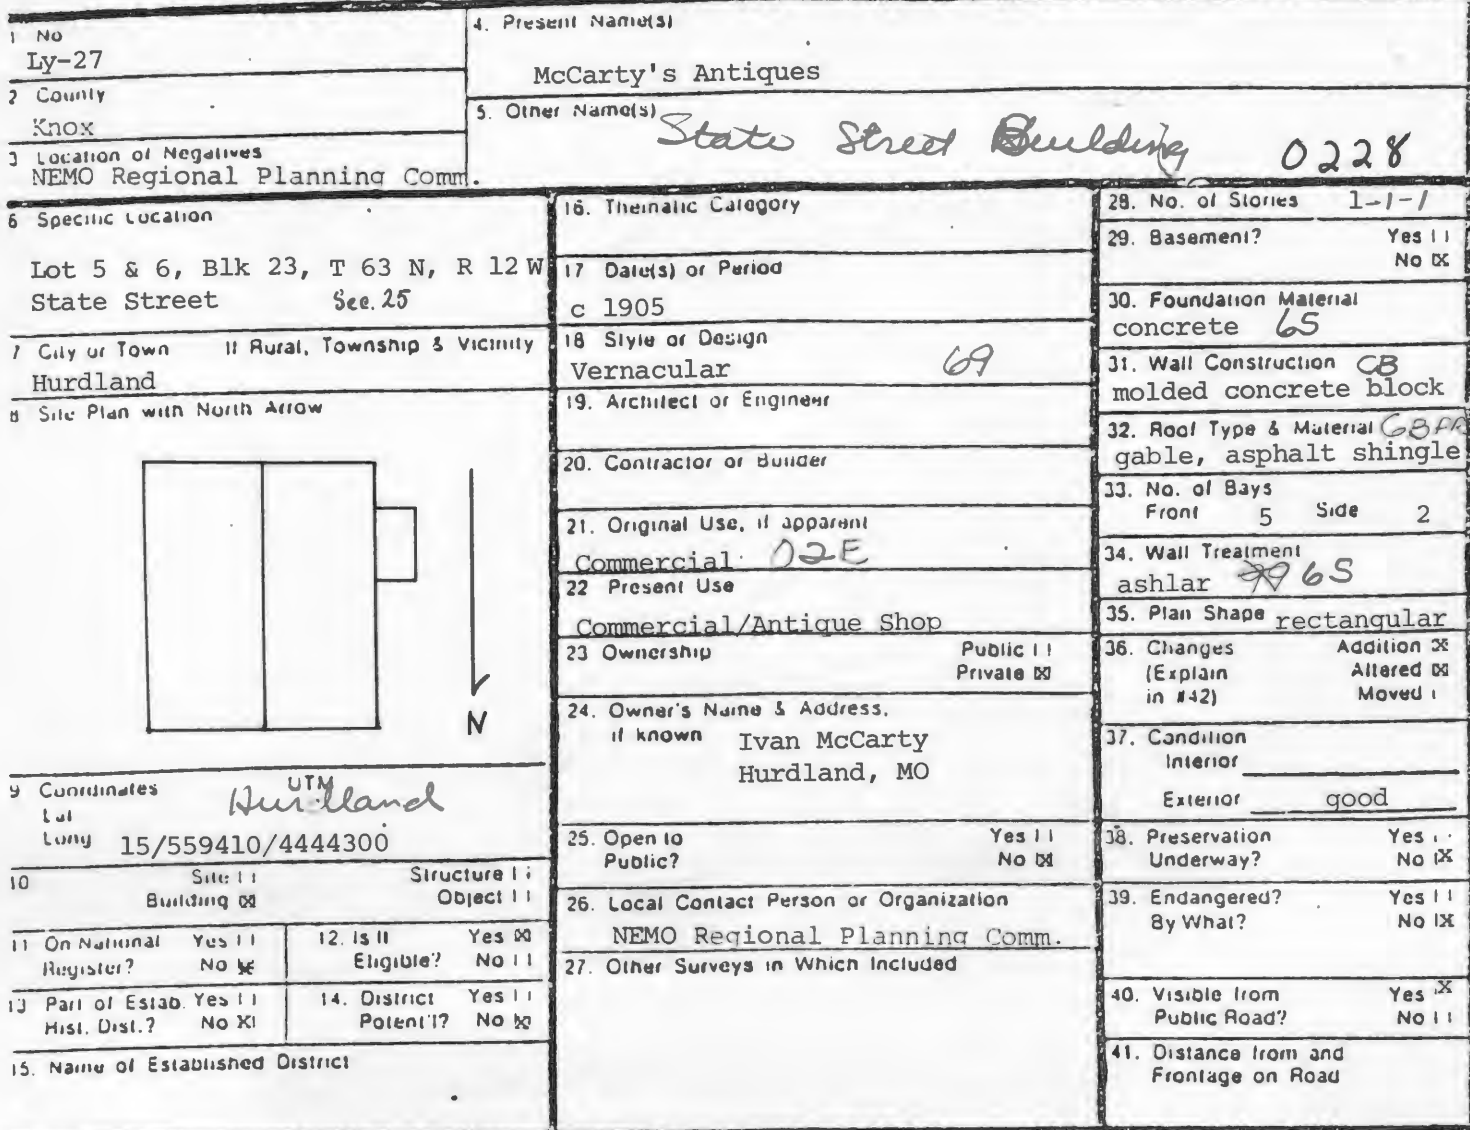 1 No
Ly-27
2 County
Knox
3 Location of Negatives
NEMO Regional Planning Comm.
4. Present Name(s)
McCarty's Antiques
5. Other Name(s) State Street Building 0228
6 Specific Location
Lot 5 & 6, Blk 23, T 63 N, R 12 W
State Street Sec. 25
7 City or Town If Rural, Township & Vicinity
Hurdland
8 Site Plan with North Arrow
N
9 Coordinates UTM
Lat Hurdland
Long 15/559410/4444300
10 Site [ ] Structure [ ]
Building [X] Object [ ]
11 On National Yes [ ]
Register? No [X]
12. Is It Yes [X]
Eligible? No [ ]
13 Part of Estab. Yes [ ]
Hist. Dist.? No [X]
14. District Yes [ ]
Potent'l? No [X]
15. Name of Established District
16. Thematic Category
17 Date(s) or Period
c 1905
18 Style or Design
Vernacular 69
19. Architect or Engineer
20. Contractor or Builder
21. Original Use, if apparent
Commercial 02E
22 Present Use
Commercial/Antique Shop
23 Ownership Public [ ]
Private [X]
24. Owner's Name & Address,
if known Ivan McCarty
Hurdland, MO
25. Open to Yes [ ]
Public? No [X]
26. Local Contact Person or Organization
NEMO Regional Planning Comm.
27. Other Surveys in Which Included
28. No. of Stories 1-1-1
29. Basement? Yes [ ]
No [X]
30. Foundation Material
concrete 65
31. Wall Construction CB
molded concrete block
32. Roof Type & Material GB
gable, asphalt shingle
33. No. of Bays
Front 5 Side 2
34. Wall Treatment
ashlar 65
35. Plan Shape rectangular
36. Changes Addition [X]
(Explain Altered [X]
in #42) Moved [ ]
37. Condition
Interior
Exterior good
38. Preservation Yes [ ]
Underway? No [X]
39. Endangered? Yes [ ]
By What? No [X]
40. Visible from Yes [X]
Public Road? No [ ]
41. Distance from and
Frontage on Road